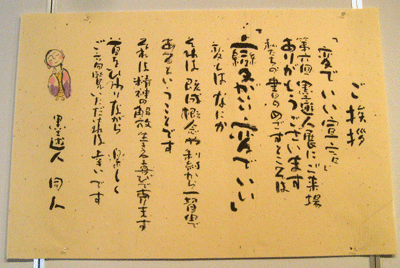 ご挨拶
「変でいい宣言」
第六回墨遊人展にご来場
ありがとうございます
私たちの書のめざすところは
「変がいい変でいい」
変とはなにか
それは既成概念や利害から一番自由で
あるということです
それは精神の解放 生きる喜びで
首をひねりながら 楽しく
ご高覧いただければ幸いです
墨遊人 同人